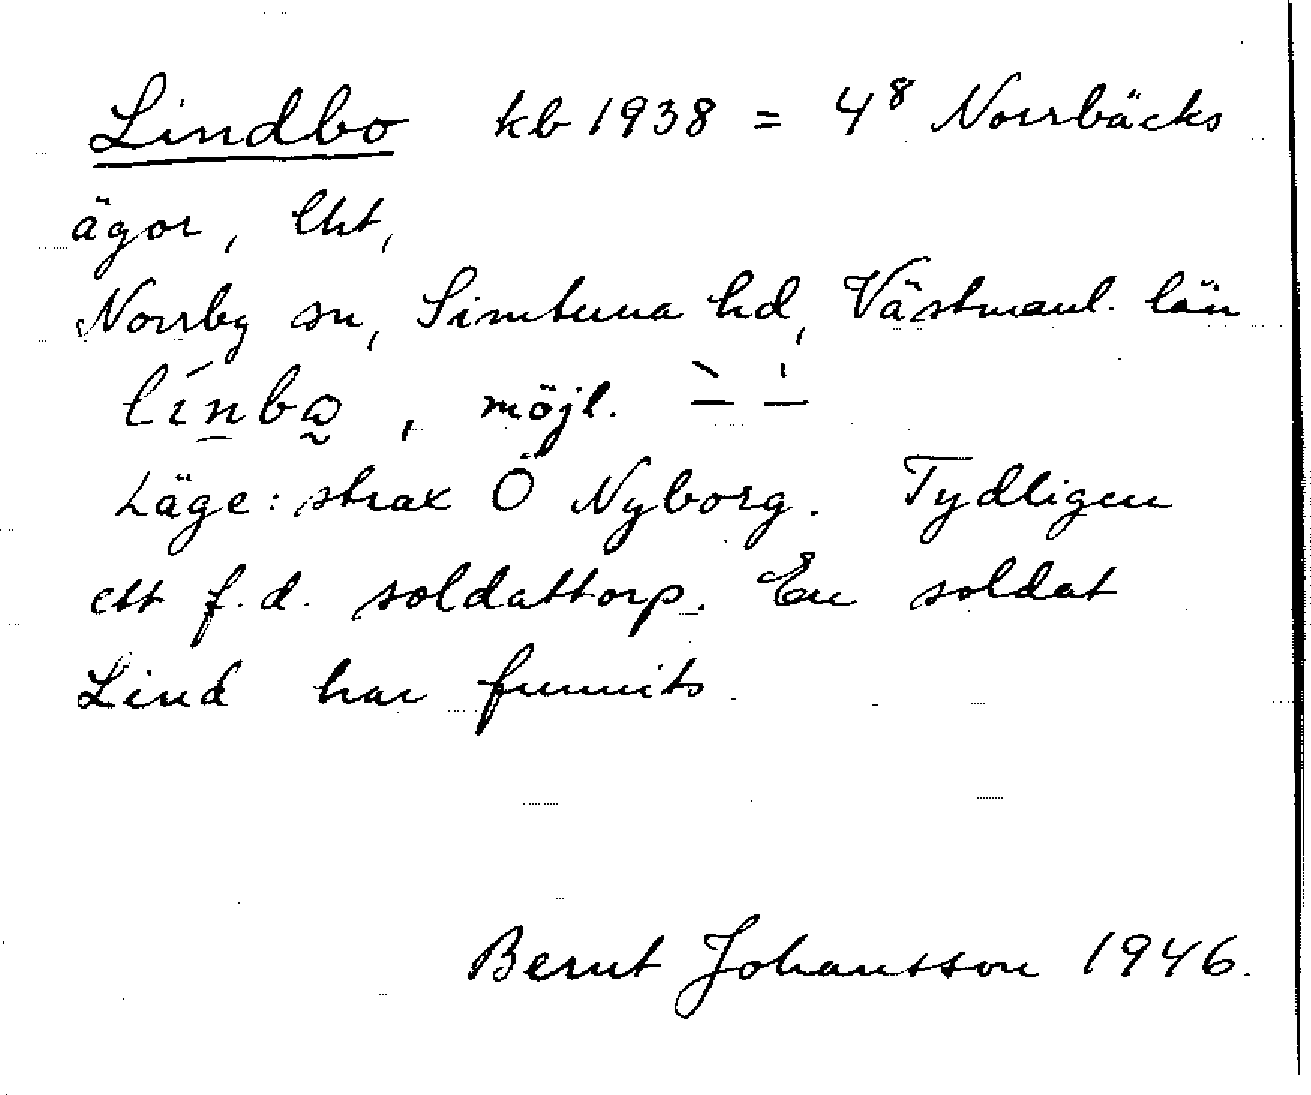 Lindbo kb 1938 = 4⁸ Norrbäcks
ägor, lht,
Norrby sn, Simtuna hd, Västmanl. län
möjl.
Läge: strax Ö Nyborg. Tydligen
ett f.d. soldattorp. En soldat
Lind har funnits.
Bernt Johansson 1946.